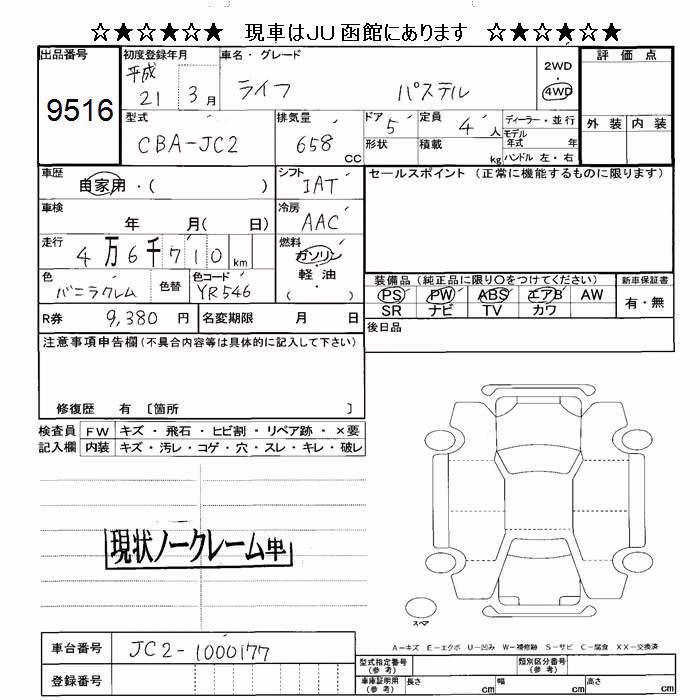 ☆★☆★☆★ 現車はJU函館にあります ☆★☆★☆★
出品番号 初度登録年月 車名・グレード 評価点
平成 2WD
9516 21 3月 ライフ パステル 4WD
型式 排気量 ドア 定員 ディーラー・並行 外装 内装
CBA-JC2 658 CC 5 4人 モデル年式 年
形状 積載 kg ハンドル 左・右
車歴 自家用・( ) シフト IAT セールスポイント (正常に機能するものに限ります)
車検 年 月( 日) 冷房 AAC
走行 4万6千710km 燃料 ガソリン
軽油
( )
色 バニラクレム 色替 色コード YR546 装備品 (純正品に限り○をつけてください) 新車保証書
PS PW ABS エアB AW 有・無
SR ナビ TV カワ
R券 9,380円 名変期限 月 日 後日品
注意事項申告欄(不具合内容等は具体的に記入して下さい)
修復歴 有 〔箇所 〕
検査員 FW キズ・飛石・ヒビ割・リペア跡・×要
記入欄 内装 キズ・汚レ・コゲ・穴・スレ・キレ・破レ
現状ノークレーム車
スペア
車台番号 JC2-1000177
A-キズ E-エクボ U-凹み W-補修跡 S-サビ C-腐食 XX-交換済
型式指定番号(参考) 類別区分番号(参考)
登録番号 車庫証明用(参考) 長さ cm 幅 cm 高さ cm